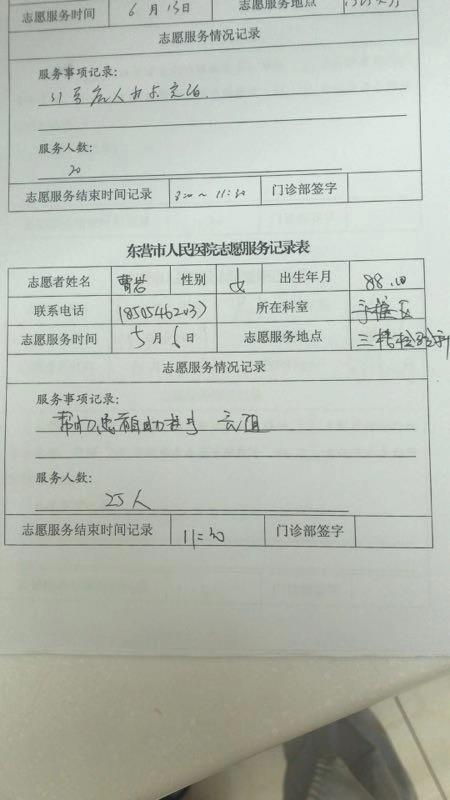 志愿服务时间 6月13日 志愿服务地点
志愿服务情况记录
服务事项记录:
引导病人打卡充值.
服务人数:
20
志愿服务结束时间记录 8:00~11:30 门诊部签字
东营市人民医院志愿服务记录表
志愿者姓名 曹岩 性别 女 出生年月 88.10
联系电话 18505462037 所在科室 手推区
志愿服务时间 5月6日 志愿服务地点 三楼检验科
志愿服务情况记录
服务事项记录:
帮助患者自助挂号
服务人数:
25人
志愿服务结束时间记录 11:30 门诊部签字